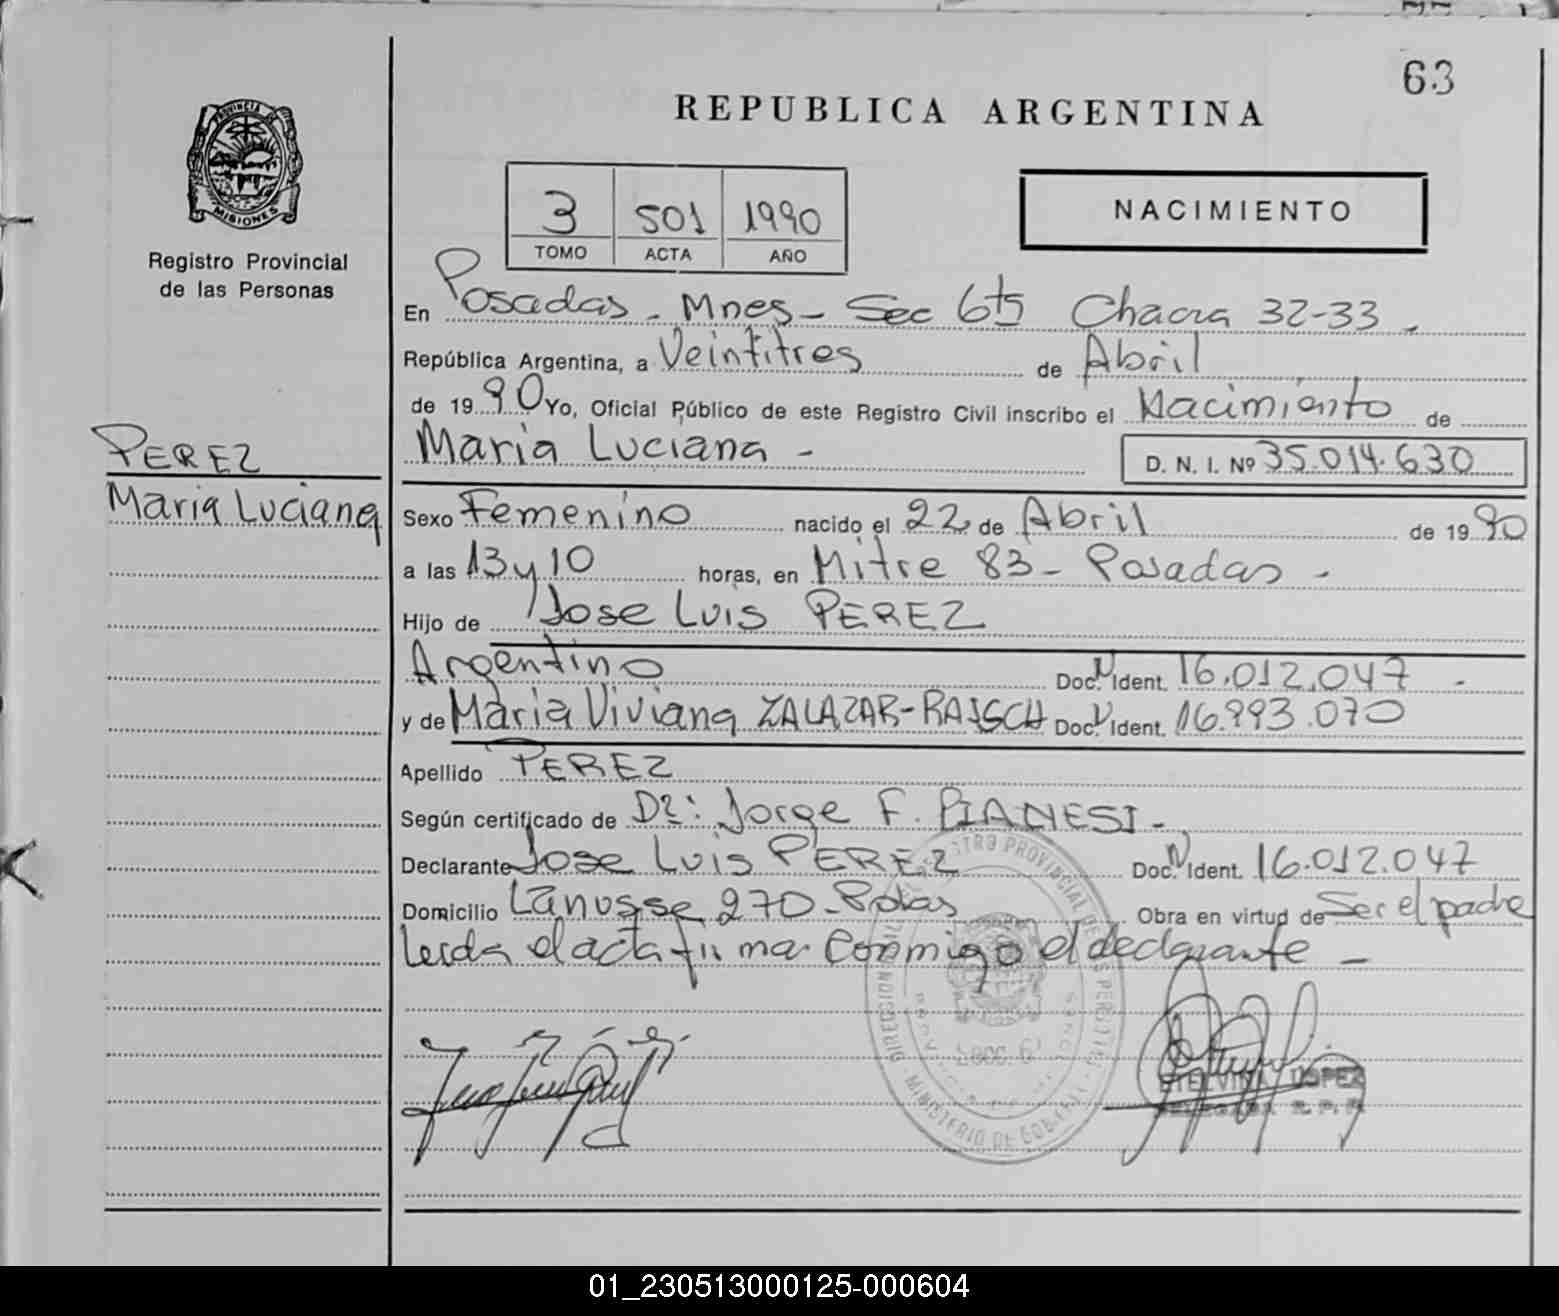 63
REPUBLICA ARGENTINA
PROVINCIA DE
MISIONES
Registro Provincial
de las Personas
3 501 1990
TOMO ACTA AÑO
NACIMIENTO
En Posadas - Mnes - Sec 6ta Chacra 32-33 -
República Argentina, a Veintitres de Abril
de 1990 Yo, Oficial Público de este Registro Civil inscribo el Nacimiento de
Maria Luciana - D. N. I. Nº 35.014.630
PEREZ
Maria Luciana
Sexo Femenino nacido el 22 de Abril de 1990
a las 13 y 10 horas, en Mitre 83 - Posadas -
Hijo de Jose Luis PEREZ
Argentino Doc. N Ident. 16.012.047 -
y de Maria Viviana ZALAZAR-RAISCH Doc. N Ident. 16.993.070
Apellido PEREZ
Según certificado de Dr: Jorge F. PIANESI -
Declarante Jose Luis PEREZ Doc. N Ident. 16.012.047
Domicilio Lanusse 270 - Pdas Obra en virtud de Ser el padre
Leida el acta firma conmigo el declarante -
REGISTRO PROVINCIAL DE LAS PERSONAS
MINISTERIO DE GOBIERNO
LOPEZ
01_230513000125-000604